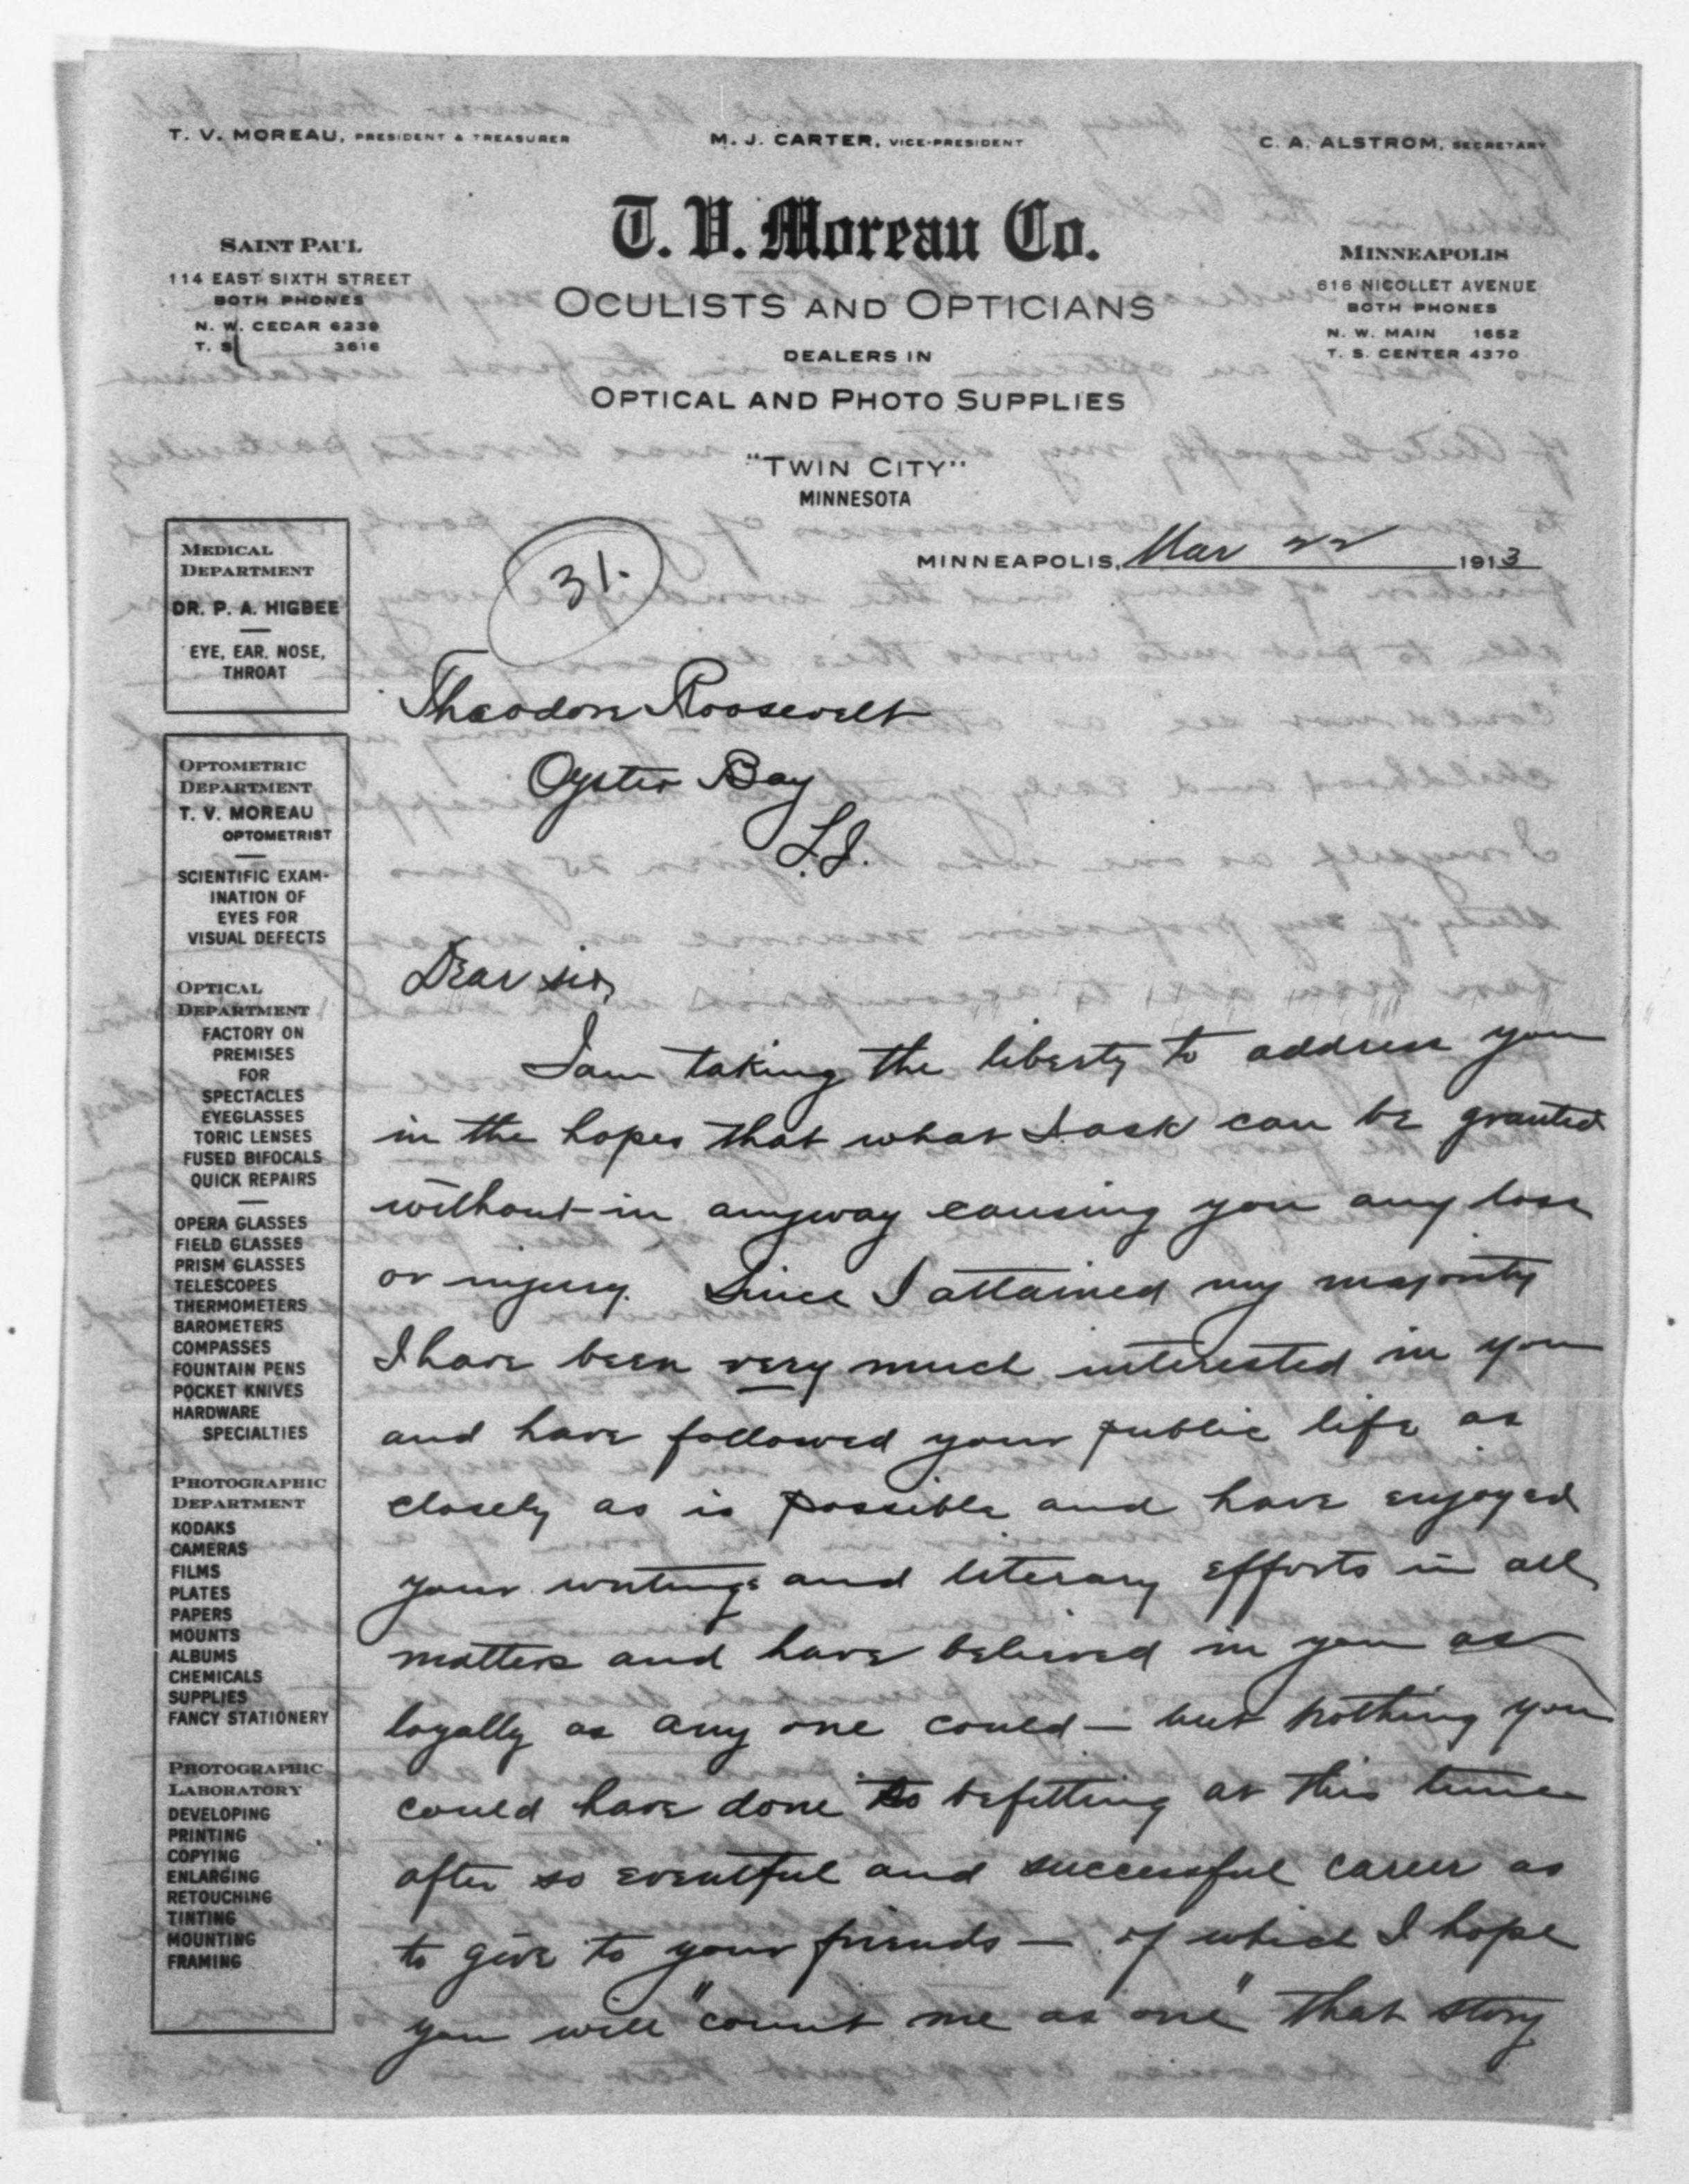 T. V. MOREAU, PRESIDENT & TREASURER
M. J. CARTER, VICE-PRESIDENT
C. A. ALSTROM, SECRETARY
T. V. Moreau Co.
OCULISTS AND OPTICIANS
DEALERS IN
OPTICAL AND PHOTO SUPPLIES
"TWIN CITY"
MINNESOTA
SAINT PAUL
114 EAST SIXTH STREET
BOTH PHONES
N. W. CEDAR 6239
T. S. 3616
MINNEAPOLIS
616 NICOLLET AVENUE
BOTH PHONES
N. W. MAIN 1652
T. S. CENTER 4370
MINNEAPOLIS, Mar 22 1913
31.
MEDICAL
DEPARTMENT
DR. P. A. HIGBEE
EYE, EAR, NOSE,
THROAT
OPTOMETRIC
DEPARTMENT
T. V. MOREAU
OPTOMETRIST
SCIENTIFIC EXAM-
INATION OF
EYES FOR
VISUAL DEFECTS
OPTICAL
DEPARTMENT
FACTORY ON
PREMISES
FOR
SPECTACLES
EYEGLASSES
TORIC LENSES
FUSED BIFOCALS
QUICK REPAIRS
OPERA GLASSES
FIELD GLASSES
PRISM GLASSES
TELESCOPES
THERMOMETERS
BAROMETERS
COMPASSES
FOUNTAIN PENS
POCKET KNIVES
HARDWARE
SPECIALTIES
PHOTOGRAPHIC
DEPARTMENT
KODAKS
CAMERAS
FILMS
PLATES
PAPERS
MOUNTS
ALBUMS
CHEMICALS
SUPPLIES
FANCY STATIONERY
PHOTOGRAPHIC
LABORATORY
DEVELOPING
PRINTING
COPYING
ENLARGING
RETOUCHING
TINTING
MOUNTING
FRAMING
Theodore Roosevelt
Oyster Bay
L.I.
Dear sir,
I am taking the liberty to address you
in the hopes that what I ask can be granted
without in anyway causing you any loss
or injury. Since I attained my majority
I have been very much interested in you
and have followed your public life as
closely as is possible and have enjoyed
your writings and literary efforts in all
matters and have believed in you as
loyally as any one could — but nothing you
could have done so befitting at this time
after so eventful and successful career as
to give to your friends — of which I hope
you will "count me as one" that story